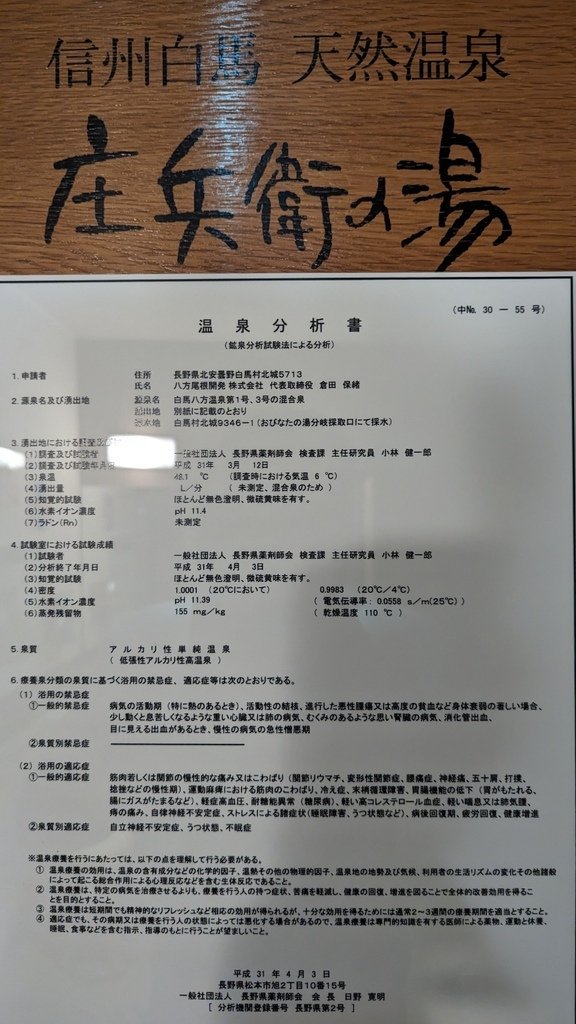 信州白馬 天然温泉
庄兵衛の湯
(中№ 30 ー 55 号)
温 泉 分 析 書
(鉱泉分析試験法による分析)
1.申請者 住所 長野県北安曇野白馬村北城5713
氏名 八方尾根開発 株式会社 代表取締役 倉田 保緒
2.源泉名及び湧出地 源泉名 白馬八方温泉第1号、3号の混合泉
湧出地 別紙に記載のとおり
採水地 白馬村北城9346ー1(おびなたの湯分岐採取口にて採水)
3.湧出地における調査及び
(1)調査及び試験者 一般社団法人 長野県薬剤師会 検査課 主任研究員 小林 健一郎
(2)調査及び試験年月日 平成 31年 3月 12日
(3)泉温 48.1 ℃ (調査時における気温 6 ℃)
(4)湧出量 L/分 ( 未測定、混合泉のため )
(5)知覚的試験 ほとんど無色澄明、微硫黄味を有す。
(6)水素イオン濃度 pH 11.4
(7)ラドン(Rn) 未測定
4.試験室における試験成績
(1)試験者 一般社団法人 長野県薬剤師会 検査課 主任研究員 小林 健一郎
(2)分析終了年月日 平成 31年 4月 3日
(3)知覚的試験 ほとんど無色澄明、微硫黄味を有す。
(4)密度 1.0001 (20℃において) 0.9983 (20℃/4℃)
(5)水素イオン濃度 pH 11.39 ( 電気伝導率: 0.0558 s/m(25℃) )
(6)蒸発残留物 155 mg/kg ( 乾燥温度 110 ℃ )
5.泉質 ア ル カ リ 性 単 純 温 泉
( 低張性アルカリ性高温泉 )
6.療養泉分類の泉質に基づく浴用の禁忌症、適応症等は次のとおりである。
(1) 浴用の禁忌症
①一般的禁忌症 病気の活動期 (特に熱のあるとき)、活動性の結核、進行した悪性腫瘍又は高度の貧血など身体衰弱の著しい場合、
少し動くと息苦しくなるような重い心臓又は肺の病気、むくみのあるような思い腎臓の病気、消化管出血、
目に見える出血があるとき、慢性の病気の急性憎悪期
②泉質別禁忌症
(2) 浴用の適応症
①一般的適応症 筋肉若しくは関節の慢性的な痛み又はこわばり (関節リウマチ、変形性関節症、腰痛症、神経痛、五十肩、打撲、
捻挫などの慢性期)、運動麻痺における筋肉のこわばり、冷え症、末梢循環障害、胃腸機能の低下 (胃がもたれる、
腸にガスがたまるなど)、軽症高血圧、耐糖能異常 (糖尿病)、軽い高コレステロール血症、軽い喘息又は肺気腫、
痔の痛み、自律神経不安定症、ストレスによる諸症状(睡眠障害、うつ状態など)、病後回復期、疲労回復、健康増進
②泉質別適応症 自立神経不安定症、うつ状態、不眠症
※温泉療養を行うにあたっては、以下の点を理解して行う必要がある。
① 温泉療養の効用は、温泉の含有成分などの化学的因子、温熱その他の物理的因子、温泉地の地勢及び気候、利用者の生活リズムの変化その他諸般
によって起こる総合作用による心理反応などを含む生体反応であること。
② 温泉療養は、特定の病気を治療させるよりも、療養を行う人の持つ症状、苦痛を軽減し、健康の回復、増進を図ることで全体的改善効用を得るこ
とを目的とすること。
③ 温泉療養は短期間でも精神的なリフレッシュなど相応の効用が得られるが、十分な効用を得るためには通常2~3週間の療養期間を適当とすること。
④ 適応症でも、その病期又は療養を行う人の状態によっては悪化する場合があるので、温泉療養は専門的知識を有する医師による薬物、運動と休養、
睡眠、食事などを含む指示、指導のもとに行うことが望ましいこと。
平成 31 年 4 月 3 日
長野県松本市旭2丁目10番15号
一般社団法人 長野県薬剤師会 会 長 日野 寛明
[ 分析機関登録番号 長野県第2号 ]